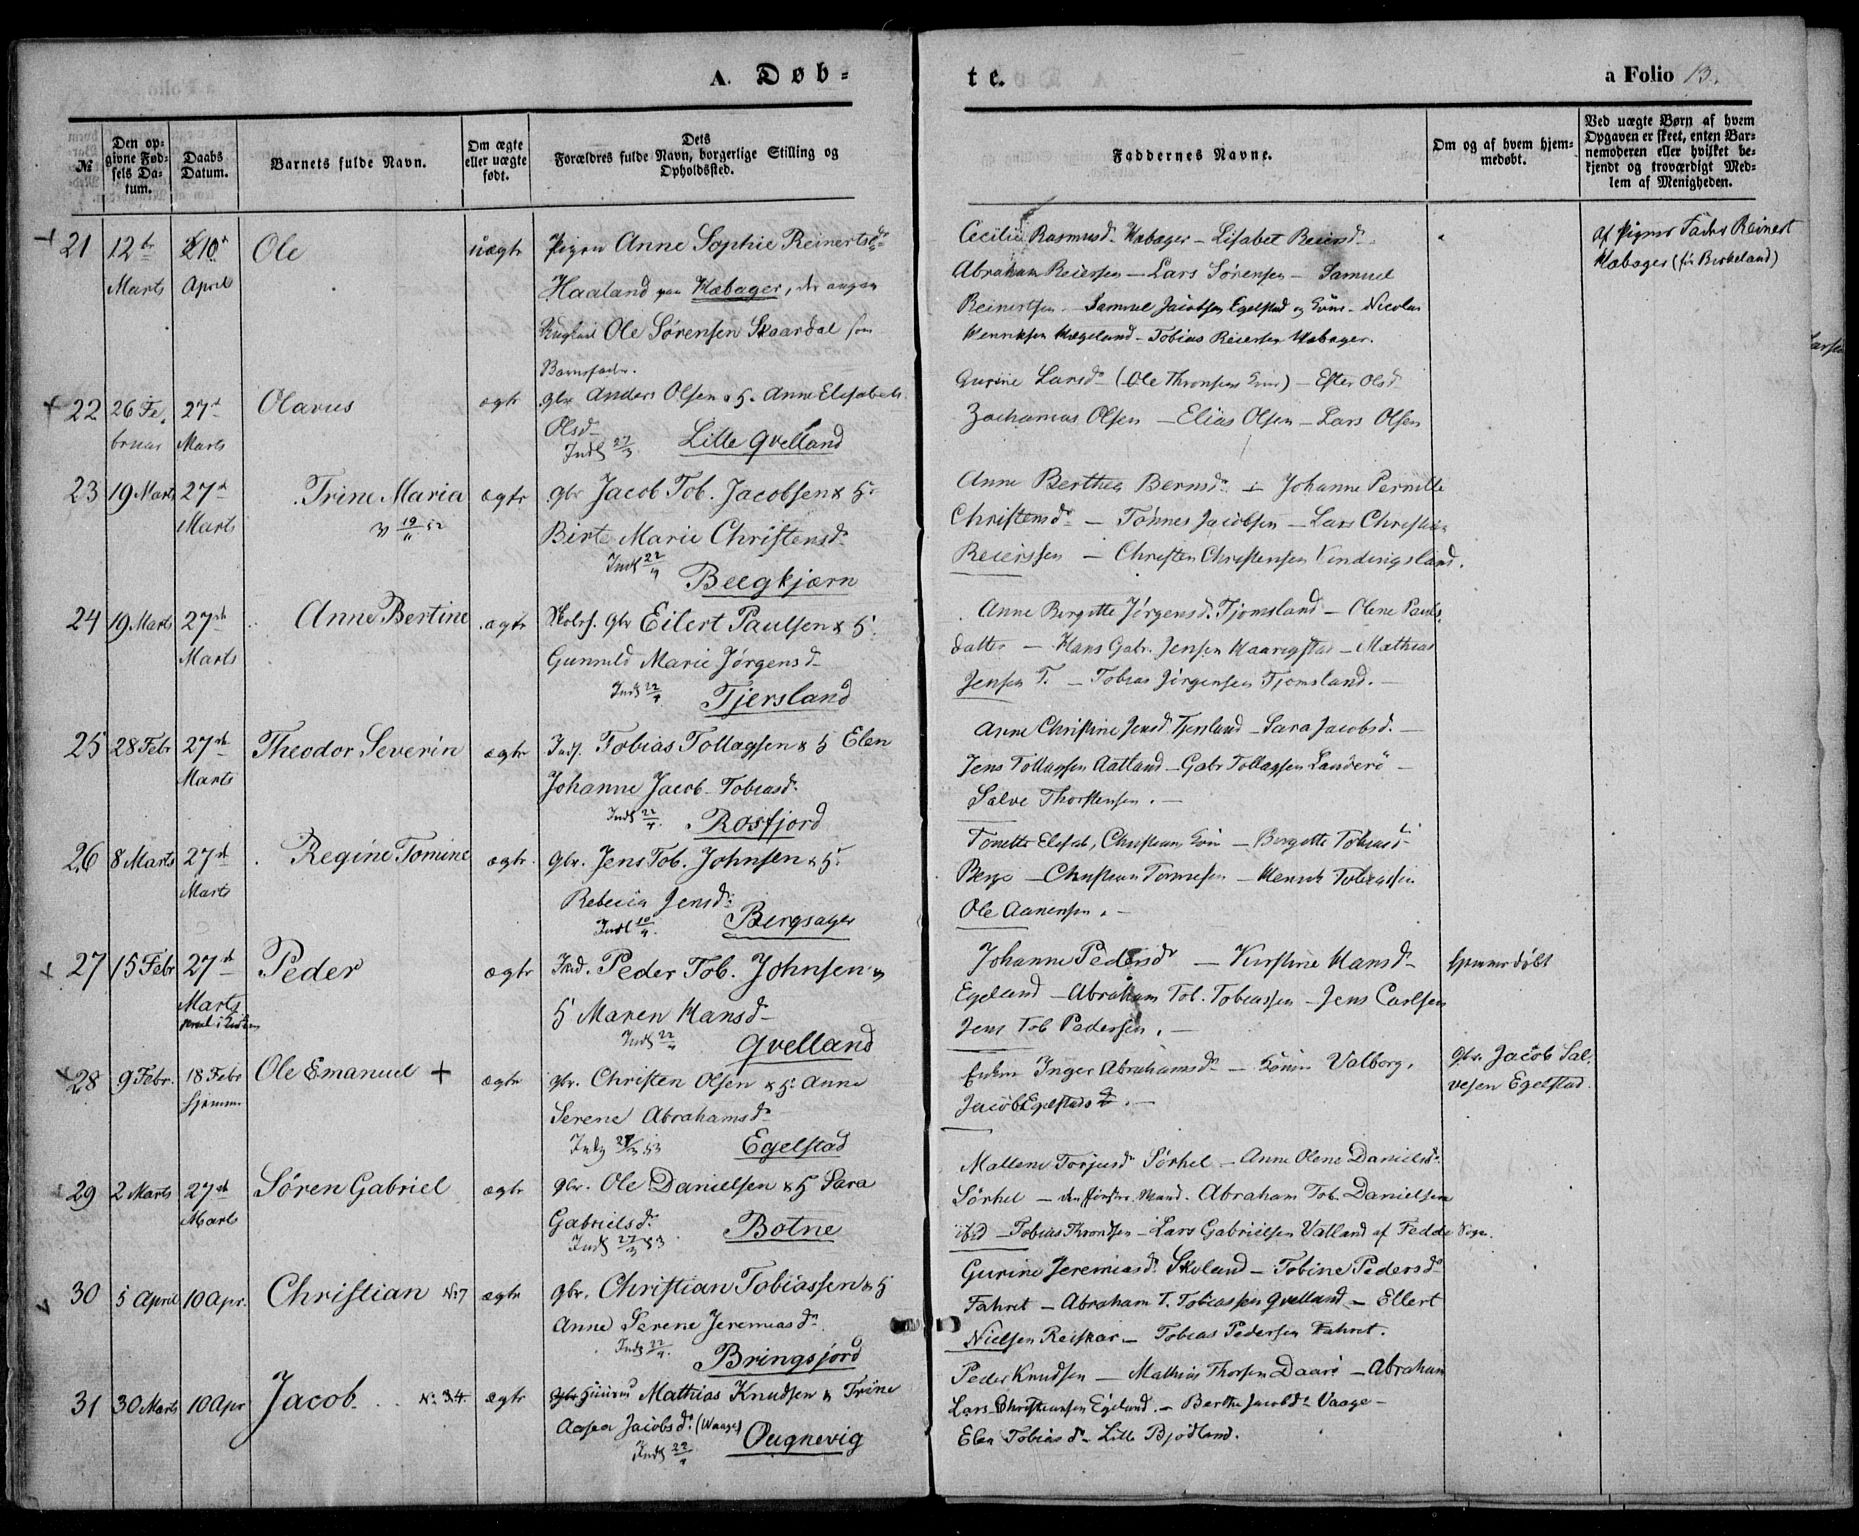 A. Døb-
te.
a Folio 13.
№
Den op-
givne Fød-
sels Da-
tum.
Daabs
Datum.
Barnets fulde Navn.
Om ægte
eller uægte
født.
Dets
Forældres fulde Navn, borgerlige Stilling og
Opholdssted.
Faddernes Navne.
Om og af hvem hjem-
medøbt.
Ved uægte Børn af hvem
Opgaven er skeet, enten Bar-
nemoderen eller hvilket be-
kjendt og troværdigt Med-
lem af Menigheden.
21 12te Marts 10de April
Ole
uægte
Pigen Anne Sophie Reinertsdr
Haaland paa Habager, der angav
Ole Sørensen Skaardal som
Barnefader.
Cecilie Rasmusdr Habager - Lisabet Reiersdr
Abraham Reiersen - Lars Sørensen - Samuel
Reinertsen - Samuel Jacobsen Egelstad og - Nicolai
Henriksen Hægeland - Tobias Reiersen Habager.
af Pigens Fader Reinert
Habager (før Birkeland)
22 26 Februar 27de Marts
Olavus
ægte
gbr Anders Olsen & H. Anne Elisabeth
Olsdr
Indl 27/3 Lille Qvelland
Gurine Larsdr (Ole Thronsens ) - Ester Olsdr
Zacharias Olsen - Elias Olsen - Lars Olsen
23 19 Marts 27de Marts
Trine Maria
ægte
gbr Jacob Tob. Jacobsen & H.
Birte Marie Christensdr
Indl 22/4 Beegkjærn
Anne Berthea Berntsdr - Johanne Pernille
Christensdr - Tønnes Jacobsen - Lars Christian
Reierssen - Christen Christensen Vindingsland.
24 19 Marts 27de Marts
Anne Bertine
ægte
Skolh. gbr Eilert Paulsen & H.
Gunnild Marie Jørgensdr
Indl 22/4 Tjersland
Anne Bergitte Jørgensdr Tjomsland - Olene Pauls
datter - Hans Gabr. Jensen Haarigstad - Mathias
Jensen T. - Tobias Jørgensen Tjomsland.
25 28 Febr 27de Marts
Theodor Severin
ægte
Inds. Tobias Tollagsen & H Elen
Johanne Jacob-Tobiasdr
Indl 22/4. Rosfjord
Anne Christine Jensdr Tjersland - Sara Jacobsdr. -
Jens Tollagsen Aatland - Gabr Tollagsen Landerø -
Salve Thorstensen.
26 8 Marts 27de Marts
Regine Tomine
ægte
gbr. Jens Tob. Johnsen & H.
Rebecca Jensdr
Indl 10/4. Bergsager
Tonette Elisab, Christians - Bergitte Tobiasdr
Berge - Christian Tønnesen - Henrik Tobiassen
Ole Aanensen.
27 15 Febr 27de Marts
Peder
ægte
Ind. Peder Tob. Johnsen &
H Maren Hansdr
Indl 22/4 Qvelland
Johanne Pedersdr - Kirstine Hansdr
Egeland - Abraham Tob. Tobiassen - Jens Carlsen
Jens Tob Pedersen.
hjemmedøbt
28 9 Febr. 18 Febr hjemme
Ole Emanuel +
ægte
gbr. Christen Olsen & H. Anne
Serene Abrahamsdr
Indl 27/3 53 Egelstad
Enken Inger Abrahamsdr - Valborg,
Jacob Egelstads
gbr. Jacob Sal-
vesen Egelstad.
29 2 Marts 27de Marts
Søren Gabriel
ægte
gbr. Ole Danielsen & H Sara
Gabrielsdr
Indl 27/3 53 Botne
Mallene Torjusdr Sørhel - Anne Olene Danielsdr
Sørhel - den Mand. Abraham Tob. Danielsen
ibd - Tobias Throndsen - Lars Gabrielsen Valland af Fedde Sogn.
30 5 April 10 Apr.
Christian No 7
ægte
gbr. Christian Tobiassen & H
Anne Serene Jeremiasdr
Indl 22/4. Bringsjord
Gurine Jeremiasdr Skeland - Tobine Pedersdr
Fahret - Abraham T. Tobiassen Qvelland - Ellert
Nielsen Reiskar - Tobias Pedersen Fahret.
31 30 Marts 10 Apr
Jacob. No 34.
ægte
Mathias Knudsen & Trine
Aasea Jacobsdr (Waage)
Indl 22/4 Ougnevig
Peder Knudsen - Mathias Thorsen Daarø - Abraham
Lars Christiansen Egeland. - Berthe Jacobsdr Vaage -
Elen Tobiasdr Lille Bjødland.